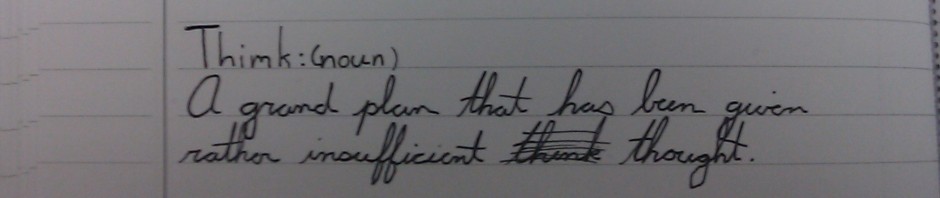 Thimk: (noun)
A grand plan that has been given
rather insufficient think thought.